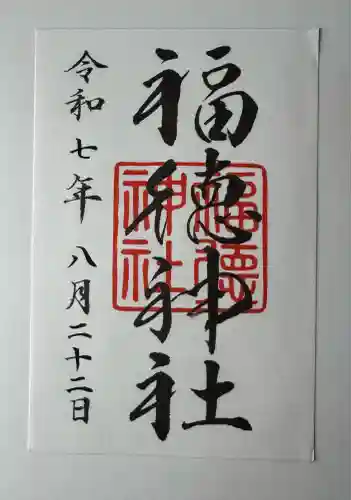 福徳神社
福徳
神社
令和七年 八月二十二日